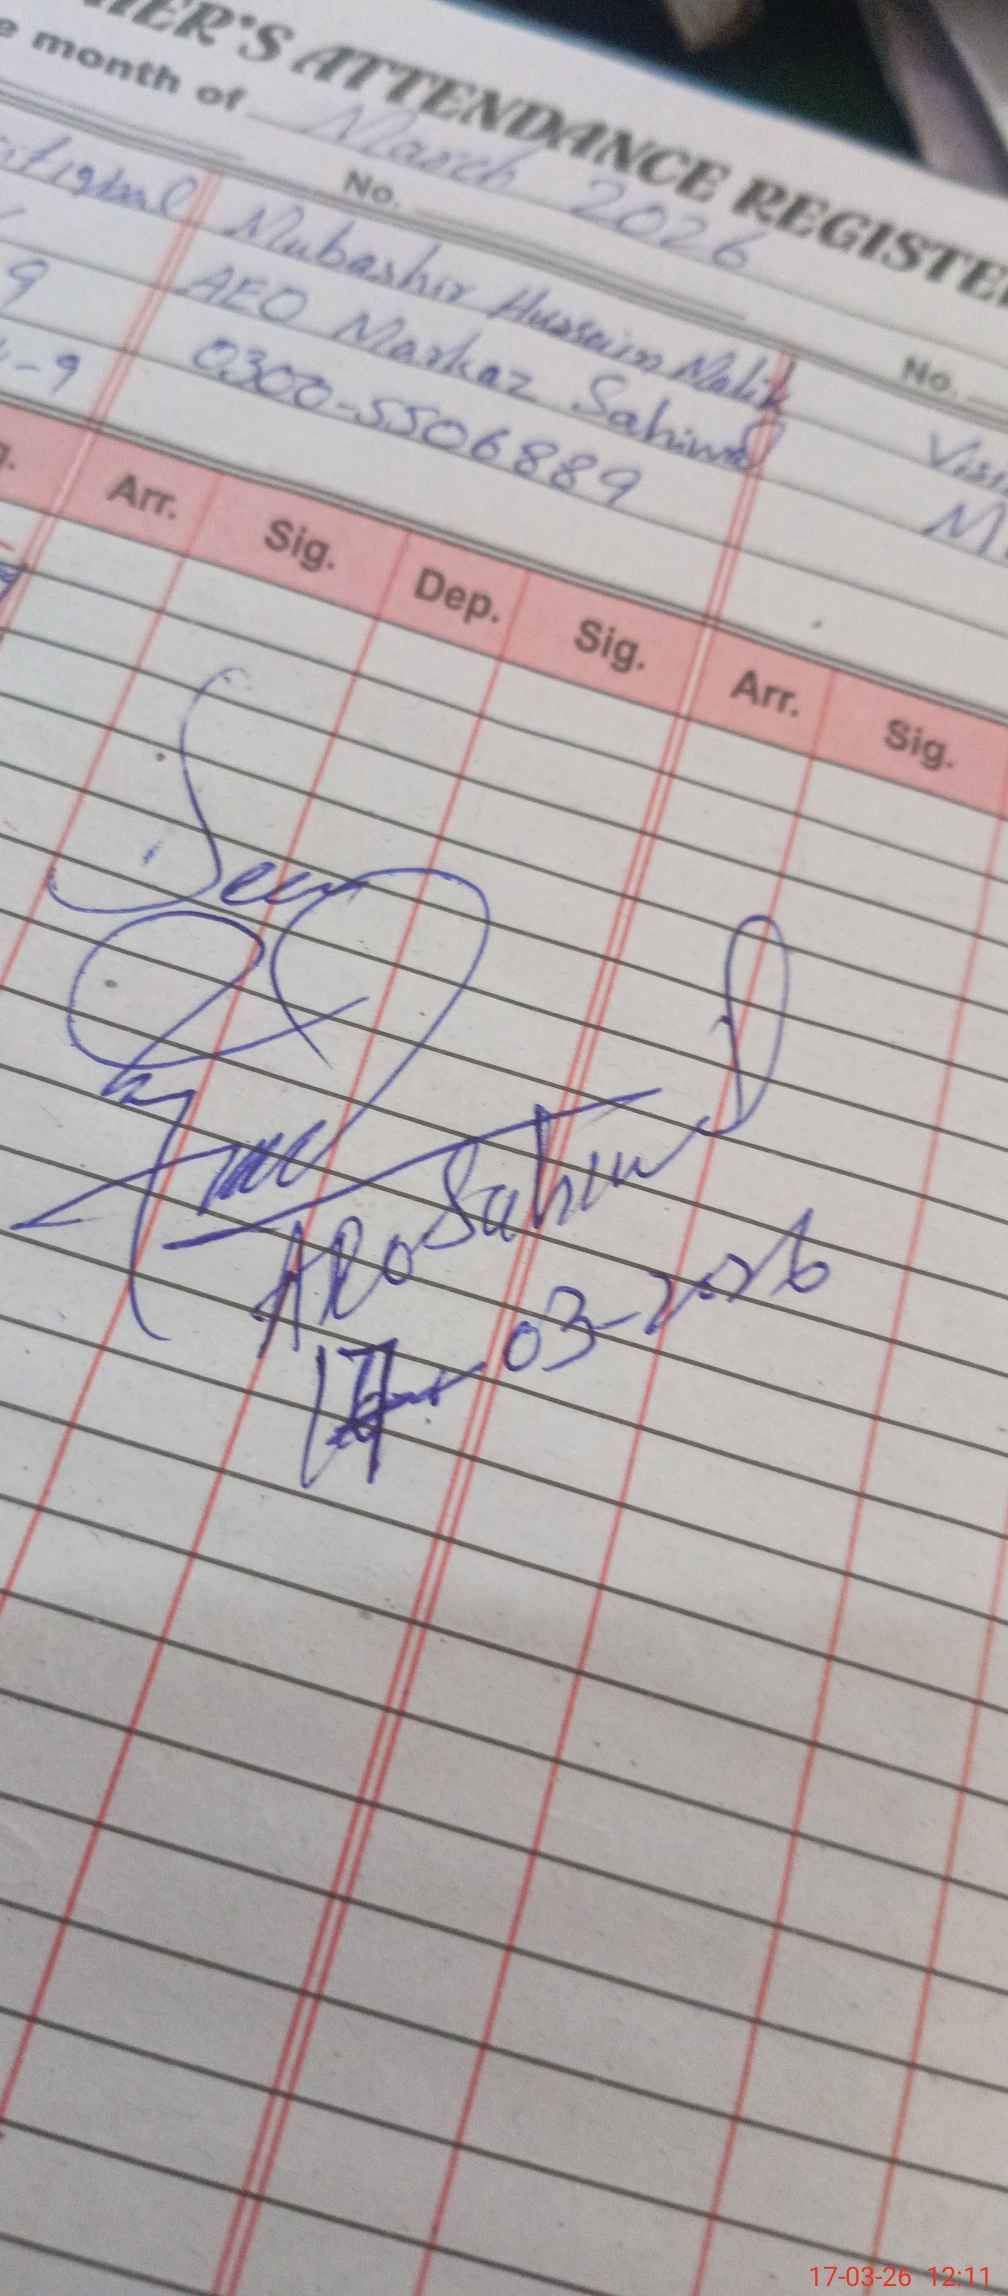 HER'S ATTENDANCE REGISTE
e month of March 2026
No.
No.
Mubashir Hussain Malik
AEO Markaz Sahiwal
0300-5506889
Visi
M
9
-9
Arr. Sig. Dep. Sig. Arr. Sig.
Seen
AEO Sahiwal
17-03-2026
17-03-26 12:11